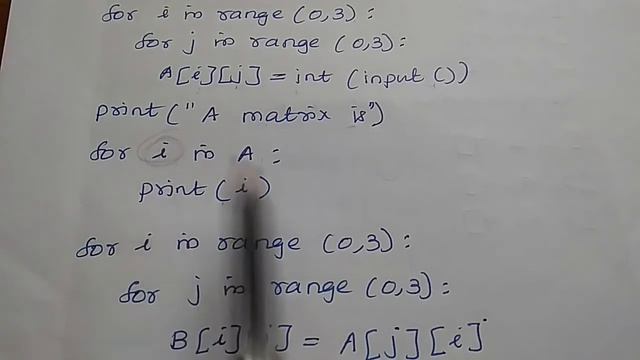 for i in range (0,3):
for j in range (0,3):
A[i][j] = int (input ())
print("A matrix is")
for i in A :
print (i)
for i in range (0,3):
for j in range (0,3):
B[i] j] = A[j][i]